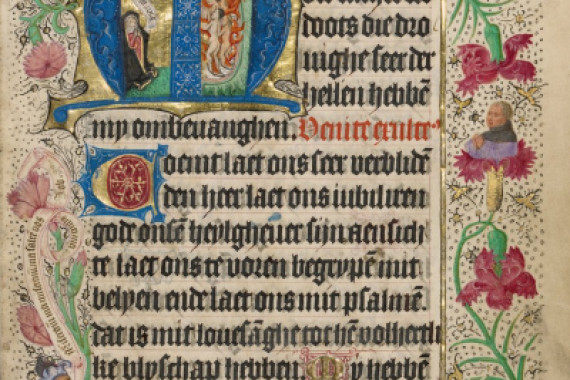 doots die dro
nighe seer der
hellen hebbē
my ombeuanghen. Venite exulte
Coemt laet ons seer verblidē
den heer laet ons iubiliren
gode onsē heylgheuer sijn aensich
te laet ons tē voren begrypē mit
belyen ende laet ons mit psalmē.
dat is mit louesāghe tot hē volhertli
ke blyschap hebben. My hebbē